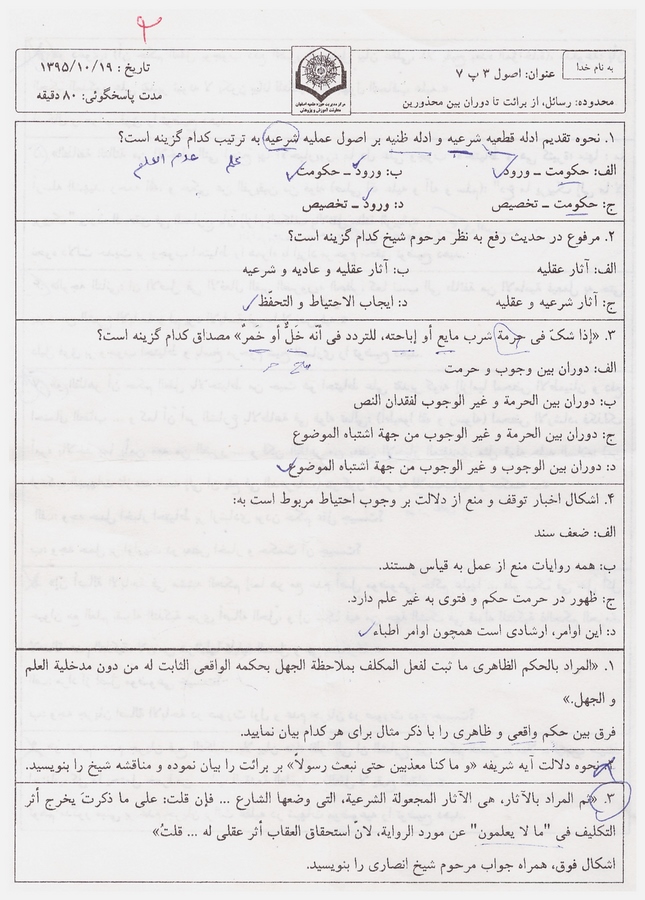 ۹
به نام خدا
عنوان: اصول ۳ پ ۷
تاریخ : ۱۳۹۵/۱۰/۱۹
محدوده: رسائل، از برائت تا دوران بین محذورین
مدت پاسخگوئی: ۸۰ دقیقه
مرکز مدیریت حوزه علمیه اصفهان
معاونت آموزش و پژوهش
۱. نحوه تقدیم ادله قطعیه شرعیه و ادله ظنیه بر اصول عملیه شرعیه به ترتیب کدام گزینه است؟
علم عدم العلم
الف: حکومت ــ ورود ب: ورود ــ حکومت
ج: حکومت ــ تخصیص د: ورود ــ تخصیص
۲. مرفوع در حدیث رفع به نظر مرحوم شیخ کدام گزینه است؟
الف: آثار عقلیه ب: آثار عقلیه و عادیه و شرعیه
ج: آثار شرعیه و عقلیه د: ایجاب الاحتیاط و التحفّظ
۳. «إذا شکّ فی حرمة شرب مایع أو إباحته، للتردد فی أنّه خَلٌّ أو خَمرٌ» مصداق کدام گزینه است؟
الف: دوران بین وجوب و حرمت
ب: دوران بین الحرمة و غیر الوجوب لفقدان النص
ج: دوران بین الحرمة و غیر الوجوب من جهة اشتباه الموضوع
د: دوران بین الوجوب و غیر الوجوب من جهة اشتباه الموضوع
۴. اشکال اخبار توقف و منع از دلالت بر وجوب احتیاط مربوط است به:
الف: ضعف سند
ب: همه روایات منع از عمل به قیاس هستند.
ج: ظهور در حرمت حکم و فتوی به غیر علم دارد.
د: این اوامر، ارشادی است همچون اوامر اطباء
۱. «المراد بالحکم الظاهری ما ثبت لفعل المکلف بملاحظة الجهل بحکمه الواقعی الثابت له من دون مدخلیة العلم
و الجهل.»
فرق بین حکم واقعی و ظاهری را با ذکر مثال برای هر کدام بیان نمایید.
۲. نحوه دلالت آیه شریفه «و ما کنا معذبین حتی نبعث رسولاً» بر برائت را بیان نموده و مناقشه شیخ را بنویسید.
۳. «ثم المراد بالآثار، هی الآثار المجعولة الشرعیة، التی وضعها الشارع ... فإن قلت: علی ما ذکرتَ یخرج أثر
التکلیف فی "ما لا یعلمون" عن مورد الروایة، لانّ استحقاق العقاب أثر عقلی له ... قلتُ»
اشکال فوق، همراه جواب مرحوم شیخ انصاری را بنویسید.